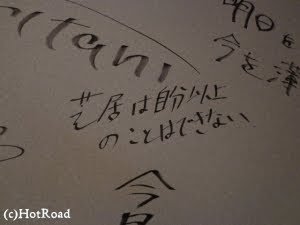 utani
明日を
今を
芝居は自分以上
のことはできない
今
(c)HotRoad